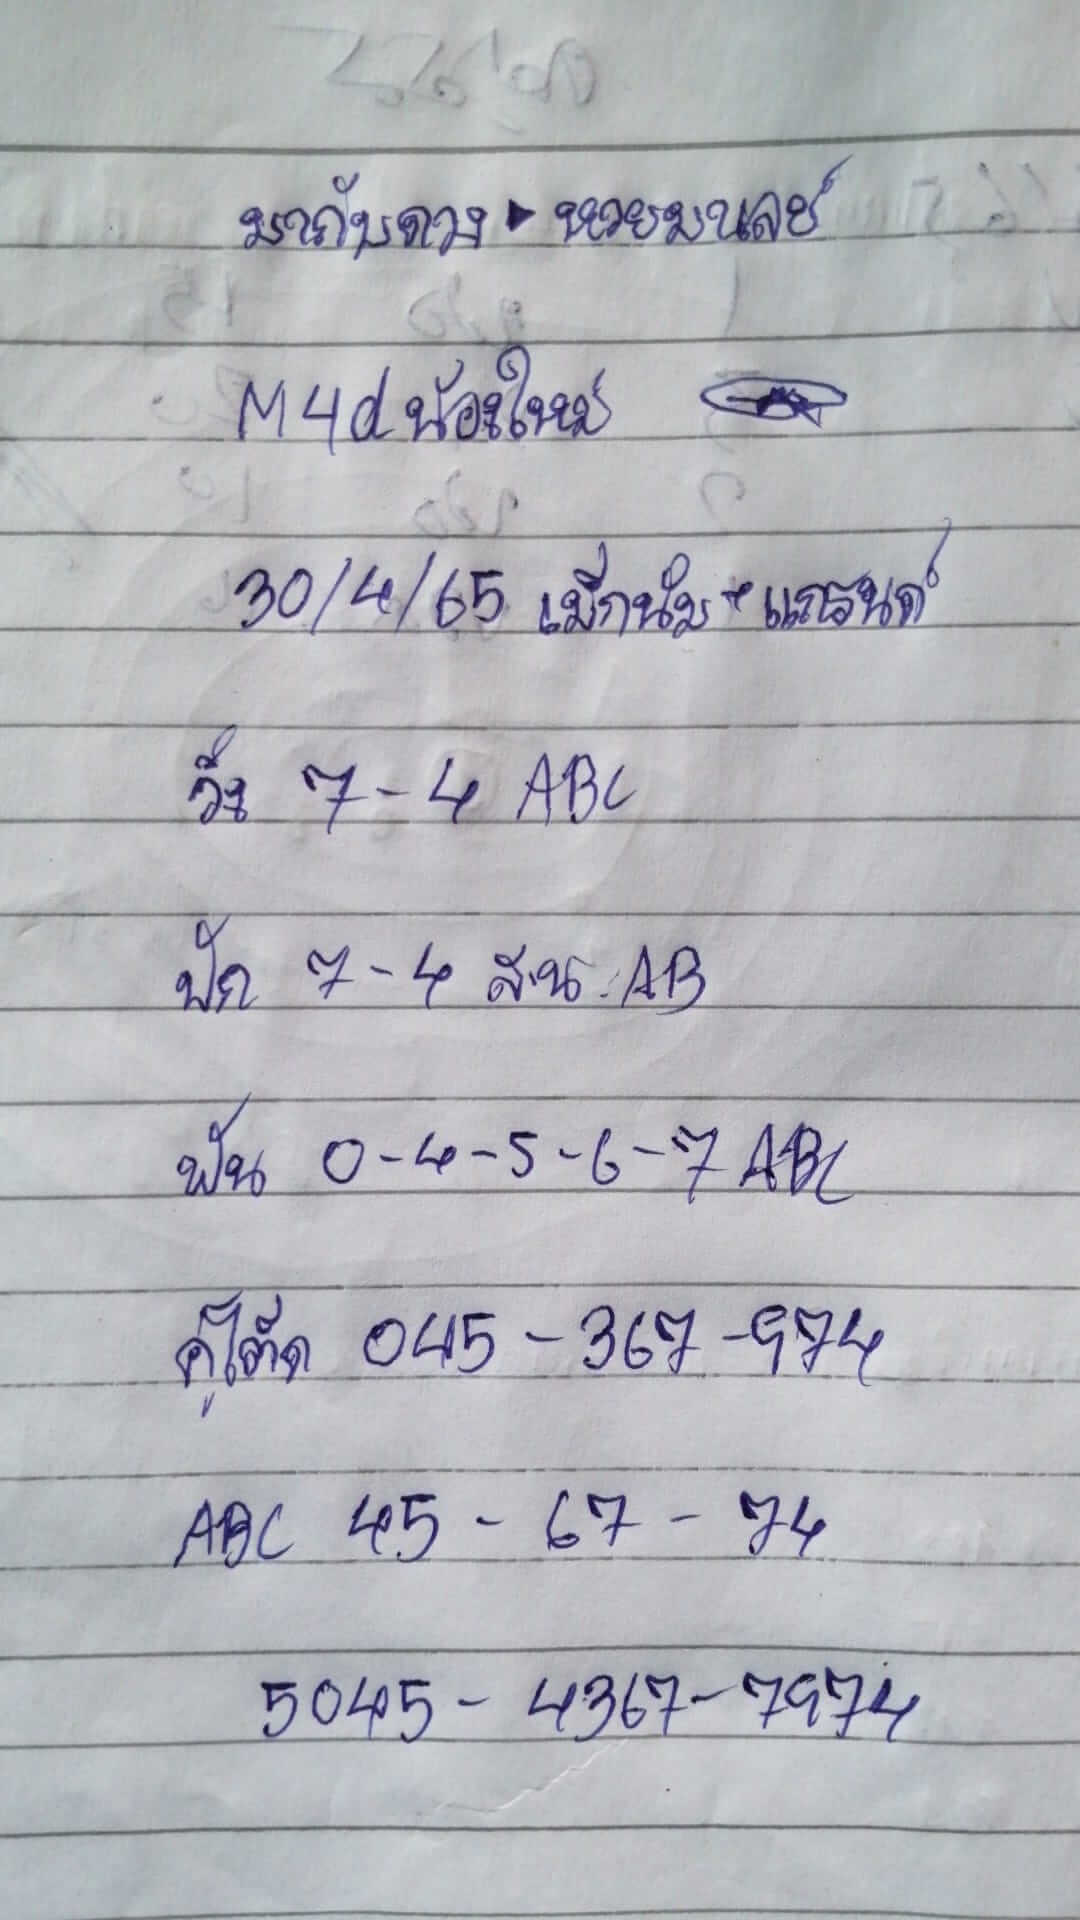 มากับดวง ▶ หวยมาเลย์
M4d น้องใหม่
30/4/65 เม็กนั่ม + แกรนด์
วิ่ง 7-4 ABC
ปัก 7-4 ส.น. AB
ฟัน 0-4-5-6-7 ABC
คู่โต๊ด 045 - 367 - 974
ABC 45 - 67 - 74
5045 - 4367 - 7974